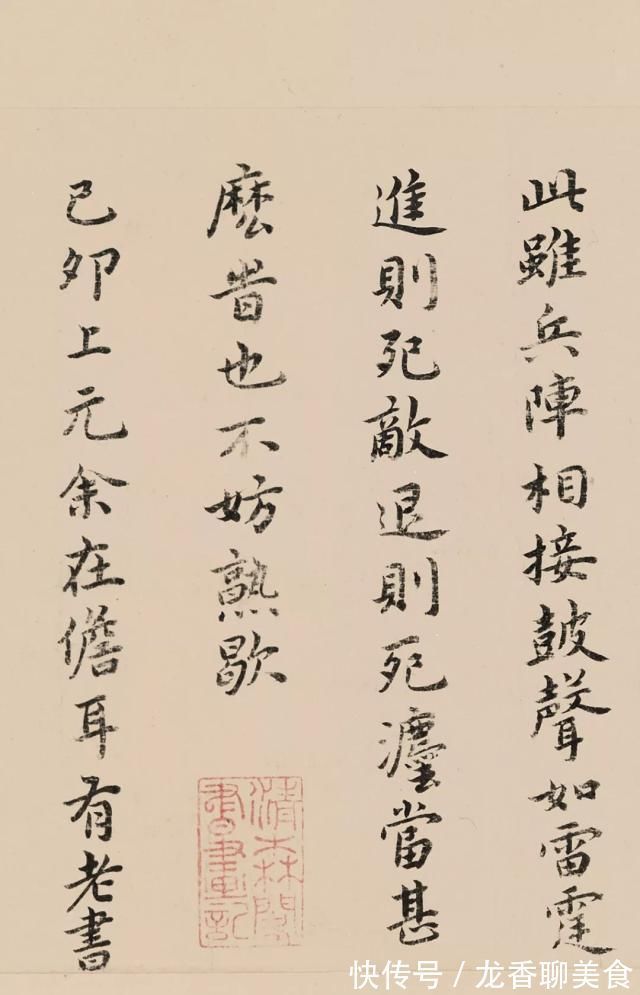 此雖兵陣相接皷聲如雷霆
進則死敵退則死灋當甚
麼旹也不妨熟歇
己卯上元余在儋耳有老書
清森閣
書畫記
快传号／龙香聊美食